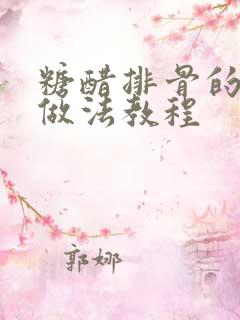 糖醋排骨的
做法教程
郭娜